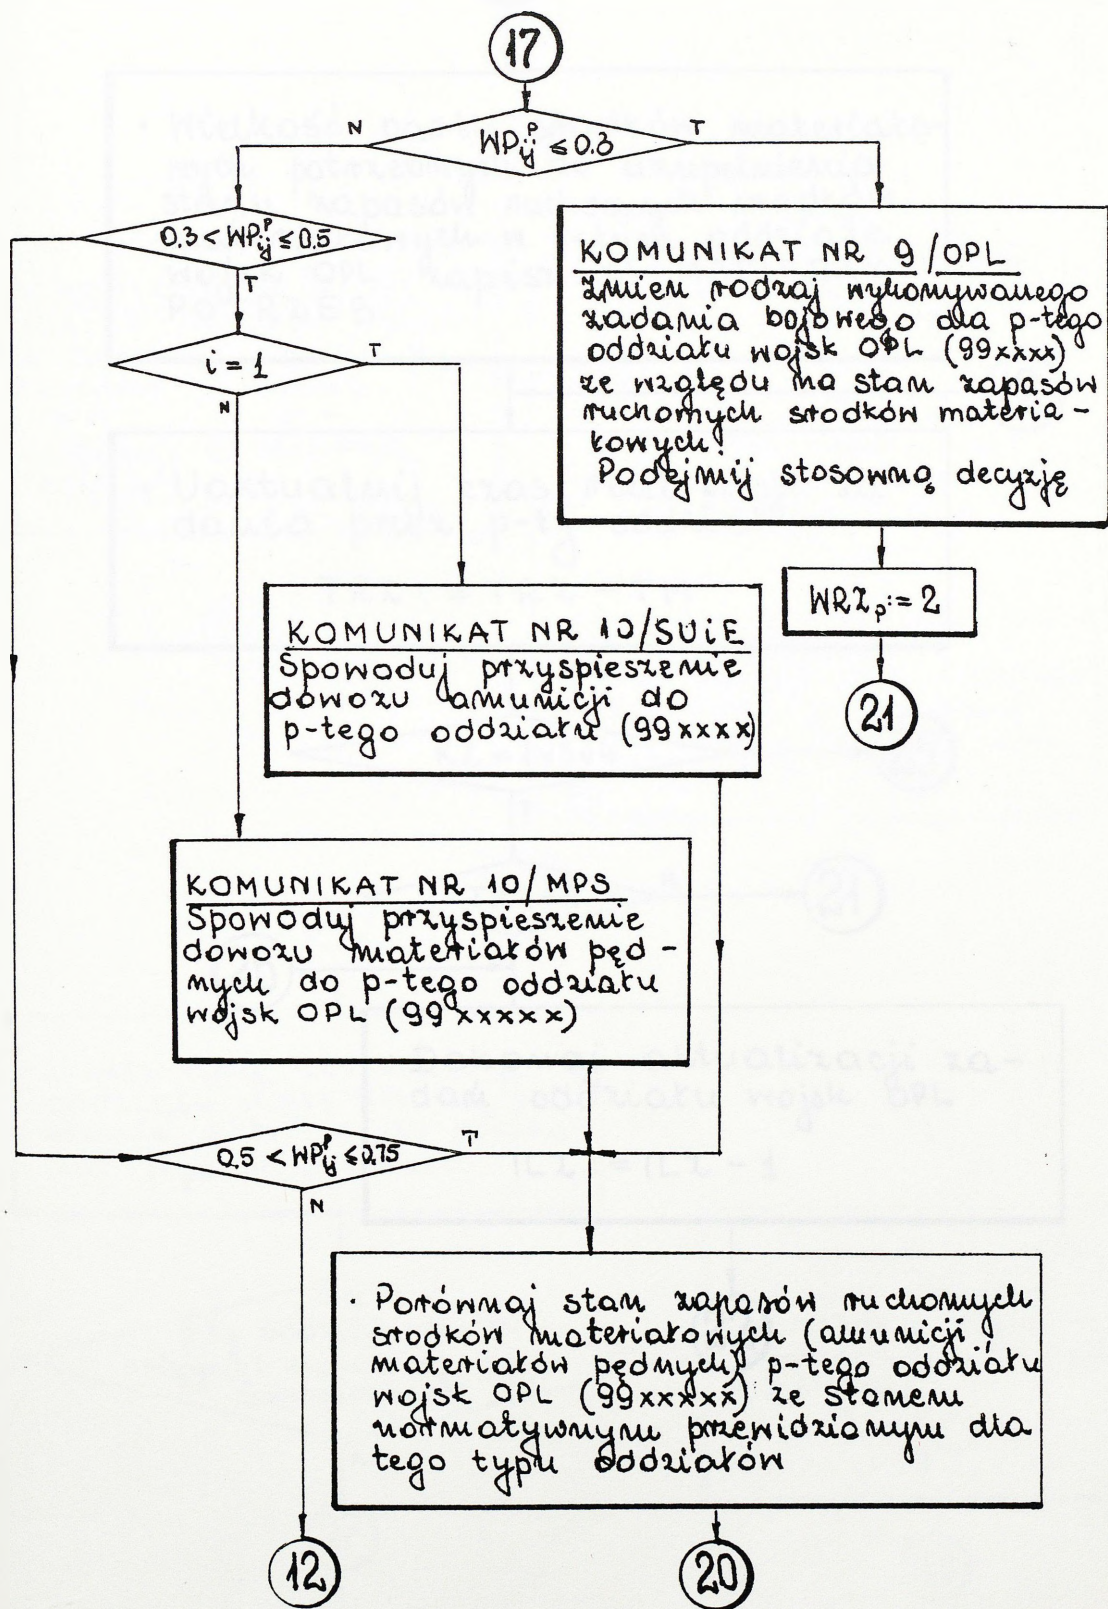 17
WP_ij^P ≤ 0.3
N
T
0.3 < WP_ij^P ≤ 0.5
T
i = 1
T
N
KOMUNIKAT NR 9/OPL
Zmień rodzaj wykonywanego
zadania bojowego dla p-tego
oddziału wojsk OPL (99xxxx)
ze względu na stan zapasów
ruchomych środków materia-
łowych!
Podejmij stosowną decyzję
WRZ_p := 2
21
KOMUNIKAT NR 10/SUiE
Spowoduj przyspieszenie
dowozu amunicji do
p-tego oddziału (99xxxx)
KOMUNIKAT NR 10/MPS
Spowoduj przyspieszenie
dowozu materiałów pęd-
nych do p-tego oddziału
wojsk OPL (99xxxxx)
0.5 < WP_ij^P ≤ 0.75
T
N
· Porównaj stan zapasów ruchomych
środków materiałowych (amunicji
materiałów pędnych) p-tego oddziału
wojsk OPL (99xxxxx) ze stanem
normatywnym przewidzianym dla
tego typu oddziałów
12
20